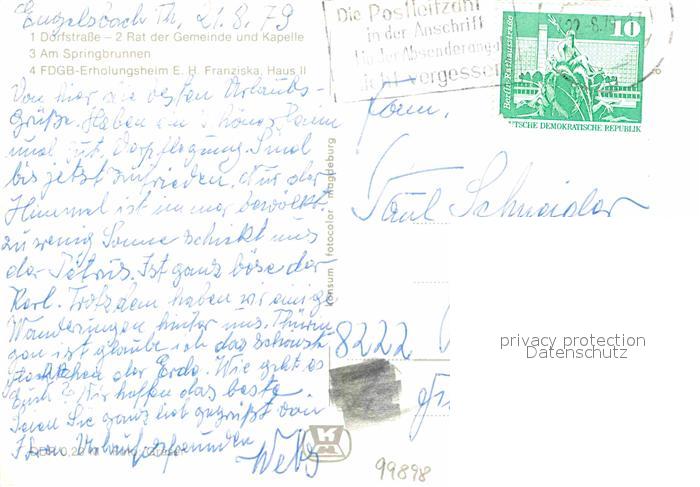 Engelsbach Th, 21.8.79
1 Dorfstraße – 2 Rat der Gemeinde und Kapelle
3 Am Springbrunnen
4 FDGB-Erholungsheim E. H. Franziska, Haus II
Von hier die besten Urlaubs-
grüße. Haben ein schönes
und gute Verpflegung. Sind
bis jetzt zufrieden. Nur der
Himmel ist immer bewölkt.
zu wenig Sonne schickt uns
der Petrus. Ist ganz böse der
Kerl. Trotzdem haben wir einige
Wanderungen hinter uns. Thürin
gen ist glaube ich das schönste
Fleckchen der Erde. Wie geht es
Euch? Wir hoffen das beste.
Seien Sie ganz lieb gegrüßt von
Ihren Urlaubsfreunden
konsum fotocolor magdeburg
Die Postleitzahl
in der Anschrift
in der Absenderang
nicht vergessen
22.-8.79
10
Berlin, Rathausstraße
DEUTSCHE DEMOKRATISCHE REPUBLIK
Fam.
Paul Schneider
8222
privacy protection
Datenschutz
KM
99898